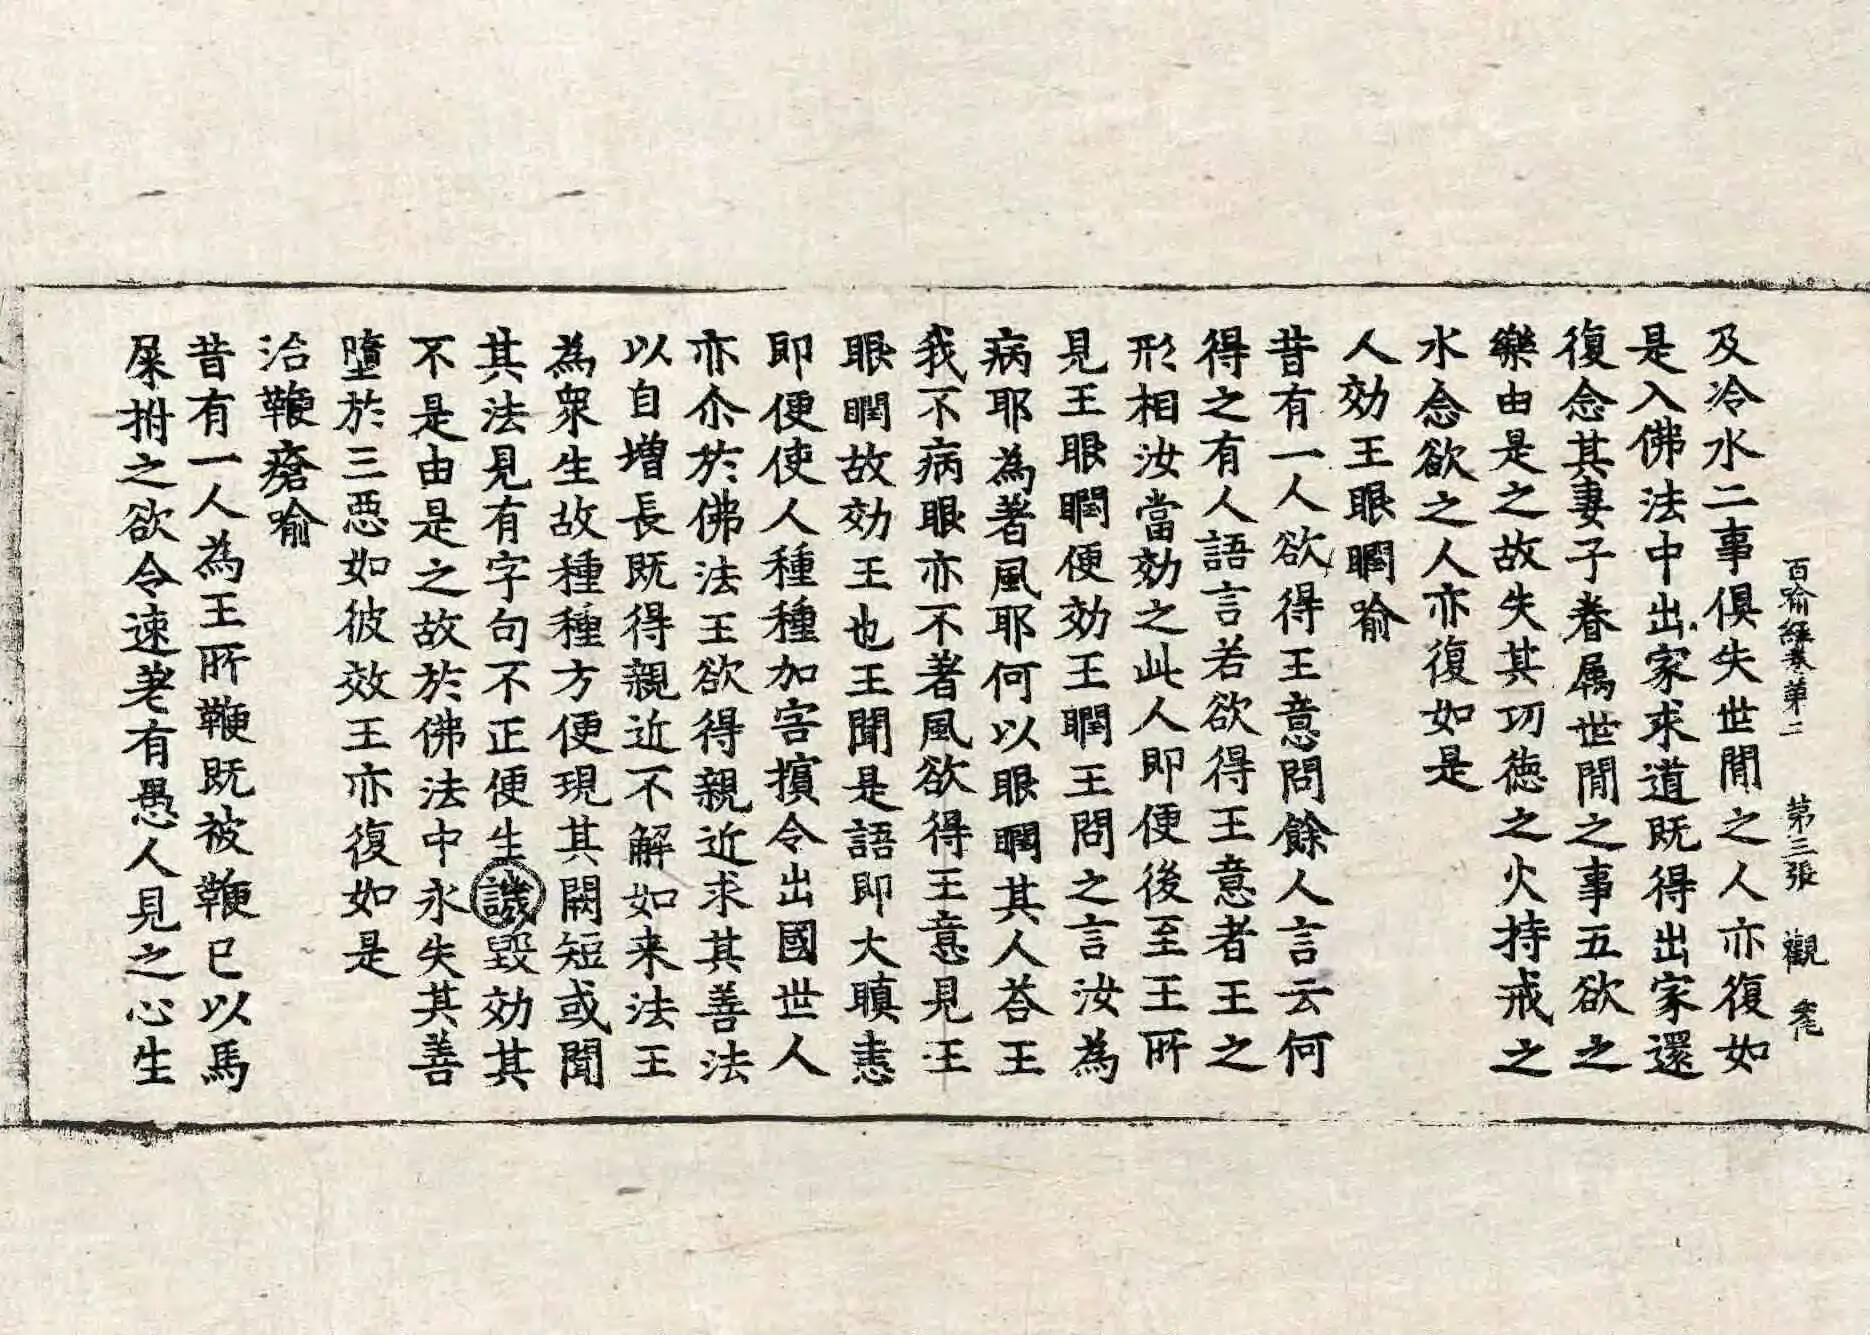 百喻經卷第二 第三張 觀
及冷水二事俱失世閒之人亦復如
是入佛法中出家求道既得出家還
復念其妻子眷属世閒之事五欲之
樂由是之故失其功德之火持戒之
水念欲之人亦復如是
人効王眼瞤喻
昔有一人欲得王意問餘人言云何
得之有人語言若欲得王意者王之
形相汝當効之此人即便後至王所
見王眼瞤便効王瞤王問之言汝為
病耶為著風耶何以眼瞤其人荅王
我不病眼亦不著風欲得王意見王
眼瞤故効王也王聞是語即大瞋恚
即便使人種種加害擯令出國世人
亦尒於佛法王欲得親近求其善法
以自增長既得親近不解如来法王
為衆生故種種方便現其闕短或聞
其法見有字句不正便生譏毀効其
不是由是之故於佛法中永失其善
墮於三惡如彼效王亦復如是
治鞭瘡喻
昔有一人為王所鞭既被鞭已以馬
屎拊之欲令速差有愚人見之心生